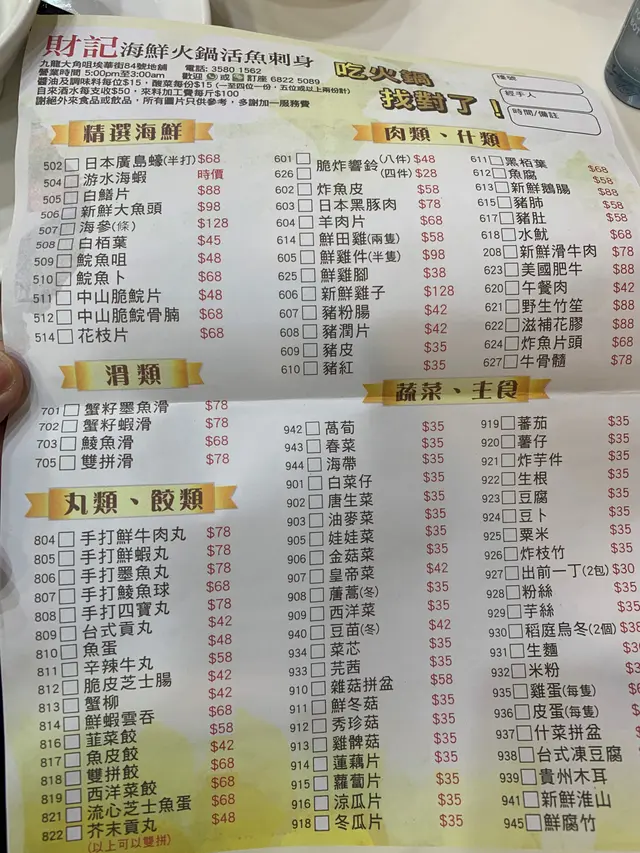 財記海鮮火鍋活魚刺身
九龍大角咀埃華街84號地舖 電話: 3580 1562
營業時間 5:00pm至3:00am 歡迎 或 訂座 6822 5089
醬油及調味料每位$15，酸菜每份$15 (一至四位一份，五位或以上兩份計)
自來酒水每支收$50，來料加工費每斤$100
謝絕外來食品或飲品，所有圖片只供參考，多謝加一服務費
吃火鍋
找對了！
檯號
經手人
時間/備註
精選海鮮
502 日本廣島蠔(半打) $68
504 游水海蝦 時價
505 白鱔片 $88
506 新鮮大魚頭 $98
507 海參(條) $128
508 白栢葉 $45
509 鯇魚咀 $48
510 鯇魚卜 $68
511 中山脆鯇片 $48
512 中山脆鯇骨腩 $68
514 花枝片 $68
滑類
701 蟹籽墨魚滑 $78
702 蟹籽蝦滑 $78
703 鯪魚滑 $68
705 雙拼滑 $78
丸類、餃類
804 手打鮮牛肉丸 $78
805 手打鮮蝦丸 $78
806 手打墨魚丸 $78
807 手打鯪魚球 $68
808 手打四寶丸 $78
809 台式貢丸 $42
810 魚蛋 $48
811 辛辣牛丸 $58
812 脆皮芝士腸 $42
813 蟹柳 $42
814 鮮蝦雲吞 $68
816 韮菜餃 $58
817 魚皮餃 $42
818 雙拼餃 $68
819 西洋菜餃 $68
821 流心芝士魚蛋 $68
822 芥末貢丸 $48
(以上可以雙拼)
肉類、什類
601 脆炸響鈴 (八件) $48
626 (四件) $28
602 炸魚皮 $58
603 日本黑豚肉 $78
604 羊肉片 $68
614 鮮田雞(兩隻) $58
605 鮮雞件(半隻) $98
625 鮮雞腳 $38
606 新鮮雞子 $128
607 豬粉腸 $42
608 豬潤片 $42
609 豬皮 $35
610 豬紅 $35
611 黑栢葉 $68
612 魚腐 $58
613 新鮮鵝腸 $88
615 豬肺 $58
617 豬肚 $58
618 水魷 $68
208 新鮮滑牛肉 $78
623 美國肥牛 $88
620 午餐肉 $42
621 野生竹笙 $88
622 滋補花膠 $88
624 炸魚片頭 $68
627 牛骨髓 $78
蔬菜、主食
942 萵筍 $35
943 春菜 $35
944 海帶 $35
901 白菜仔 $35
902 唐生菜 $35
903 油麥菜 $35
905 娃娃菜 $35
906 金菇菜 $35
907 皇帝菜 $42
908 藷蒿(冬) $35
909 西洋菜 $35
940 豆苗(冬) $42
934 菜芯 $35
933 芫茜 $35
910 雜菇拼盆 $58
911 鮮冬菇 $35
912 秀珍菇 $35
913 雞髀菇 $35
914 蓮藕片 $35
915 蘿蔔片 $35
916 涼瓜片 $35
918 冬瓜片 $35
919 蕃茄 $35
920 薯仔 $35
921 炸芋件 $35
922 生根 $35
923 豆腐 $35
924 豆卜 $35
925 粟米 $35
926 炸枝竹 $35
927 出前一丁(2包) $30
928 粉絲 $35
929 芋絲 $35
930 稻庭烏冬(2個) $38
931 生麵
932 米粉
935 雞蛋(每隻)
936 皮蛋(每隻)
937 什菜拼盆
938 台式凍豆腐
939 貴州木耳
941 新鮮淮山
945 鮮腐竹